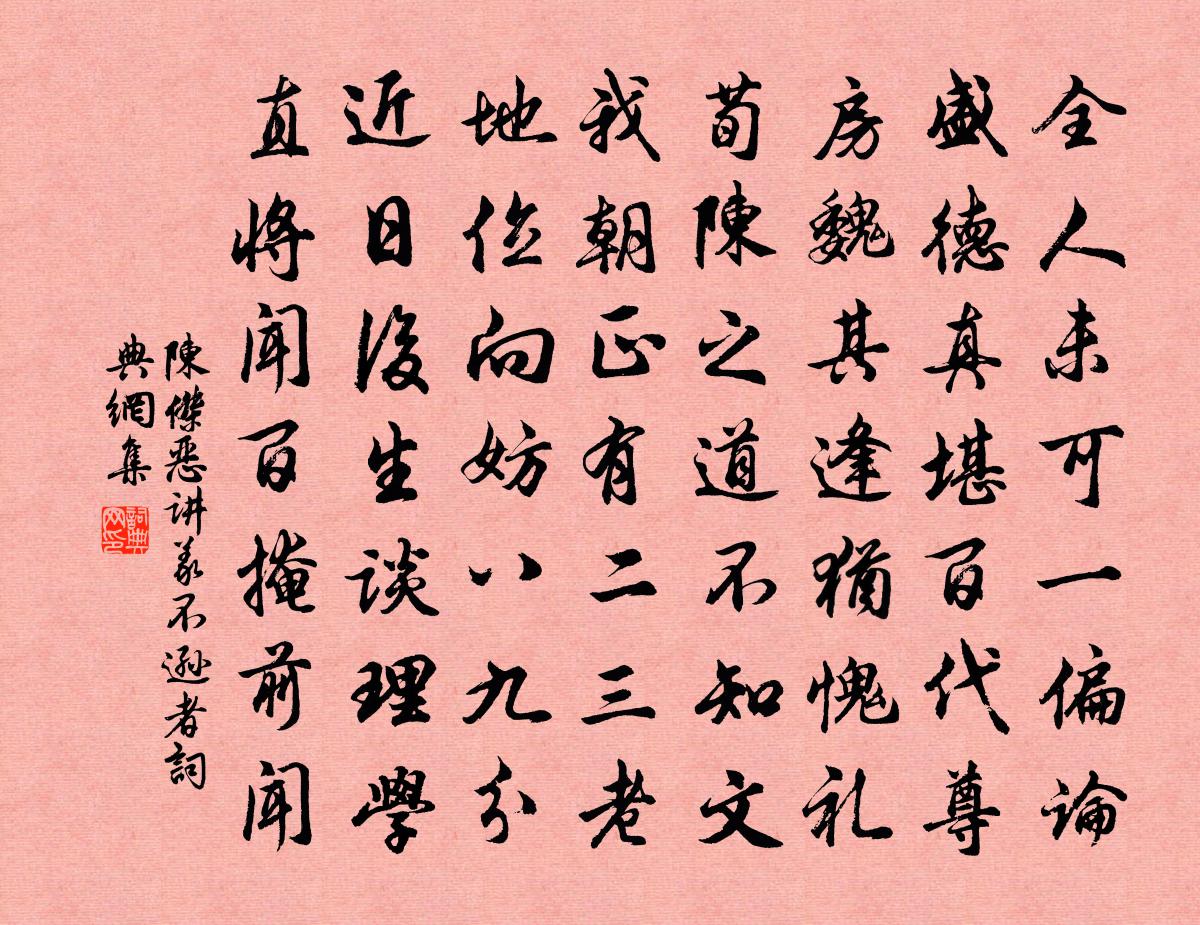 全人未可一偏論
盛德真堪百代尊
房魏其逢猶愧礼
荀陳之道不知文
我朝正有二三老
地位向妨八九分
近日後生談理學
直將聞百掩前聞
陳傑惡讲义不遜者詞
典網集
詞典
网印